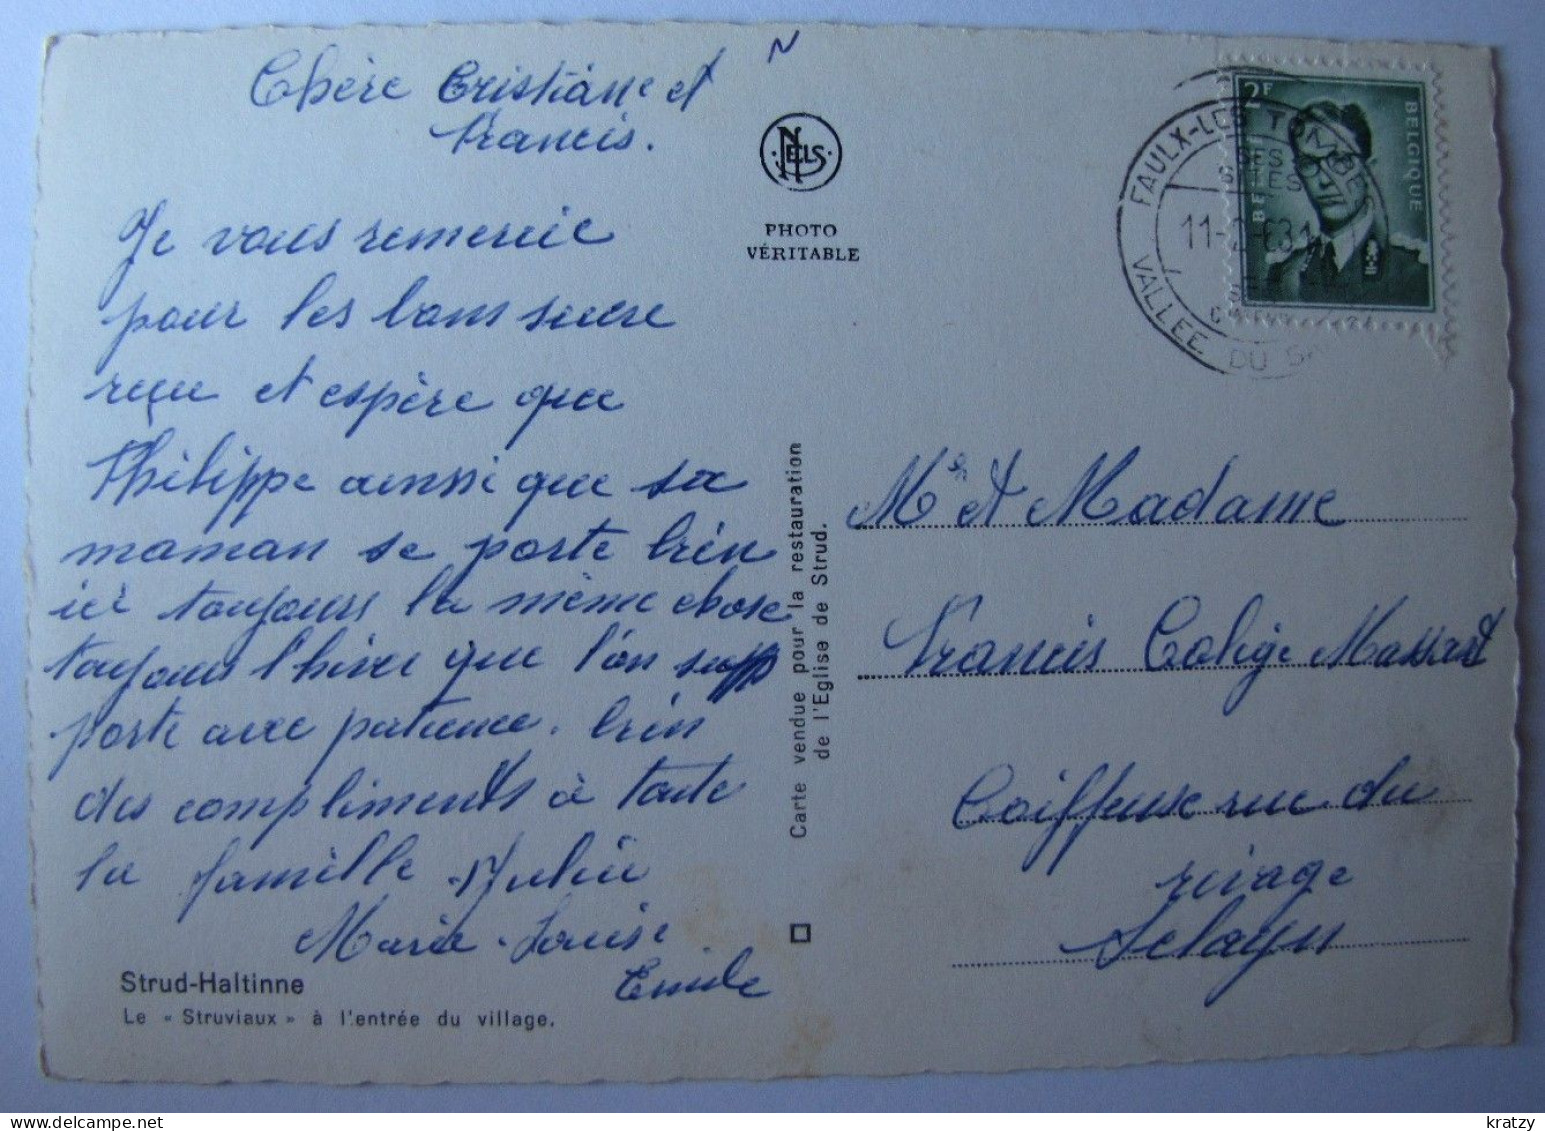 Chère Cristiane et
Francis.
Je vous remercie
pour les bons sucre
reçu et espère que
Philippe ainsi que sa
maman se porte bien
ici toujours la même chose
toujours l'hiver que l'on supp
porte avec patience. bien
des compliments à toute
la famille. Julia
Marie-Louise
Emile
Strud-Haltinne
Le « Struviaux » à l'entrée du village.
N
NELS
PHOTO
VÉRITABLE
Carte vendue pour la restauration
de l'Eglise de Strud.
2F
BELGIQUE
FAULX-LES TOMBES
SES
SITES
VALLEE DU SA
Mr et Madame
Francis Colige Massart
Coiffeuse rue du
rivage
Sclayn
kratzy